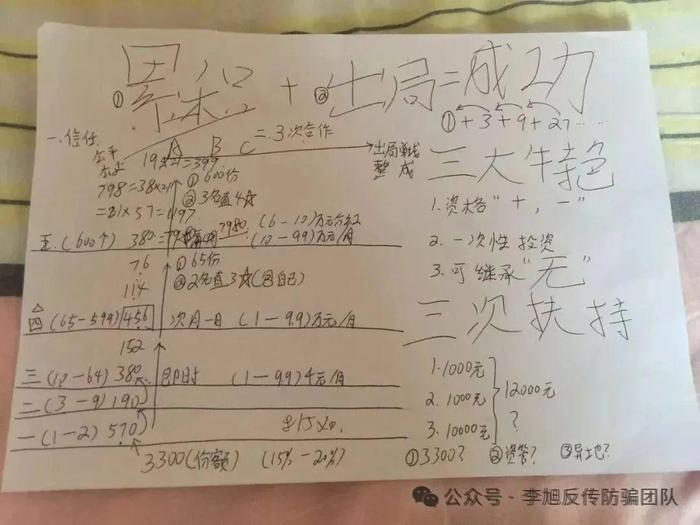 ①累积+②出局=成功
①+3+9+27……
一.信任
A B C 二.3次合作
出局单线
整 成
公平
19×21=399
798=38×21
=21×57=1197
①600份
②3名直4☆
三大特色
1.资格"+,-"
2.一次性投资
3.可继承"无"
五.(600个) 380 7980 (6-10)万元分红
(10-99)万元/月
76
114
①65份
②2名直3☆(包自己)
四 (65-599) 456 次月一日 (1-9.9)万元/月
152
三次扶持
三 (10-64) 380 即时 (1-99)千元/月
二 (3-9) 190
一 (1-2) 570
3300(份额) (15%-20%)
1.1000元
2.1000元
3.10000元
12000元
?
①3300? ②资管? ③异地?
公众号·李旭反传防骗团队